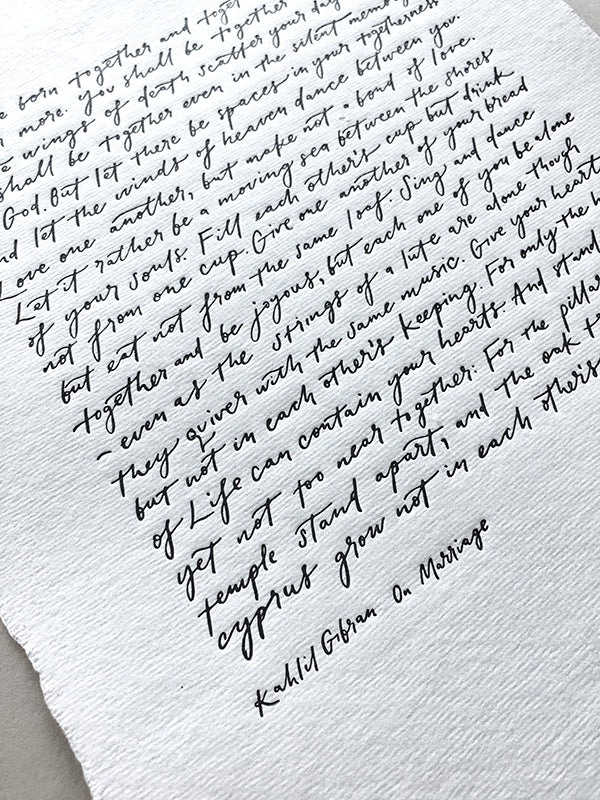 born together and
more. You shall be together
wings of death scatter your day
shall be together even in the silent
God. But let there be spaces in your togetherness
let the winds of heaven dance between you.
Love one another, but make not a bond of love.
Let it rather be a moving sea between the shores
of your souls. Fill each other's cup but drink
not from one cup. Give one another of your bread
but eat not from the same loaf. Sing and dance
together and be joyous, but each one of you be alone
- even as the strings of a lute are alone though
they quiver with the same music. Give your heart
but not in each other's keeping. For only the
of Life can contain your hearts. And stand
yet not too near together: For the pillar
temple stand apart, and the oak
cyprus grow not in each other's
Kahlil Gibran On Marriage